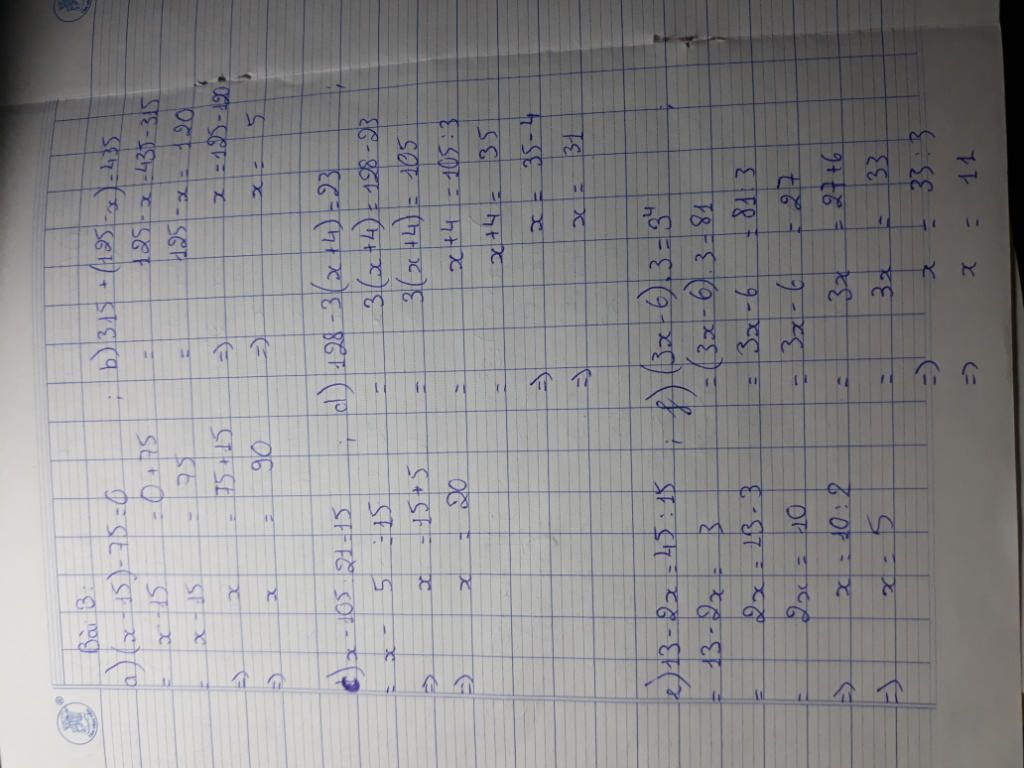 Bài 3:
a) (x - 15) - 75 = 0
= x - 15 = 0 + 75
= x - 15 = 75
=> x = 75 + 15
=> x = 90
; b) 315 + (125 - x) = 435
= 125 - x = 435 - 315
= 125 - x = 120
=> x = 125 - 120
=> x = 5
c) x - 105 : 21 = 15
= x - 5 = 15
=> x = 15 + 5
=> x = 20
; d) 128 - 3(x + 4) = 23
= 3(x + 4) = 128 - 23
= 3(x + 4) = 105
= x + 4 = 105 : 3
= x + 4 = 35
=> x = 35 - 4
=> x = 31
;
e) 13 - 2x = 45 : 15
= 13 - 2x = 3
= 2x = 13 - 3
= 2x = 10
=> x = 10 : 2
=> x = 5
; f) (3x - 6).3 = 3⁴
= (3x - 6).3 = 81
= 3x - 6 = 81 : 3
= 3x - 6 = 27
= 3x = 27 + 6
= 3x = 33
=> x = 33 : 3
=> x = 11
;